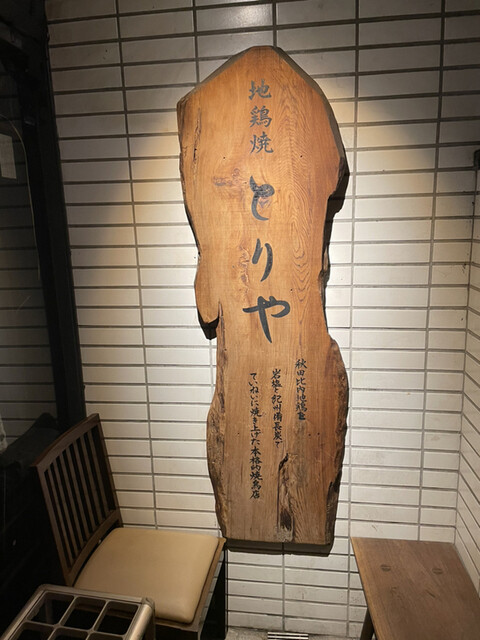 地鶏焼
とりや
秋田比内地鶏を
岩塩と紀州備長炭で
ていねいに焼き上げた本格的焼鳥店